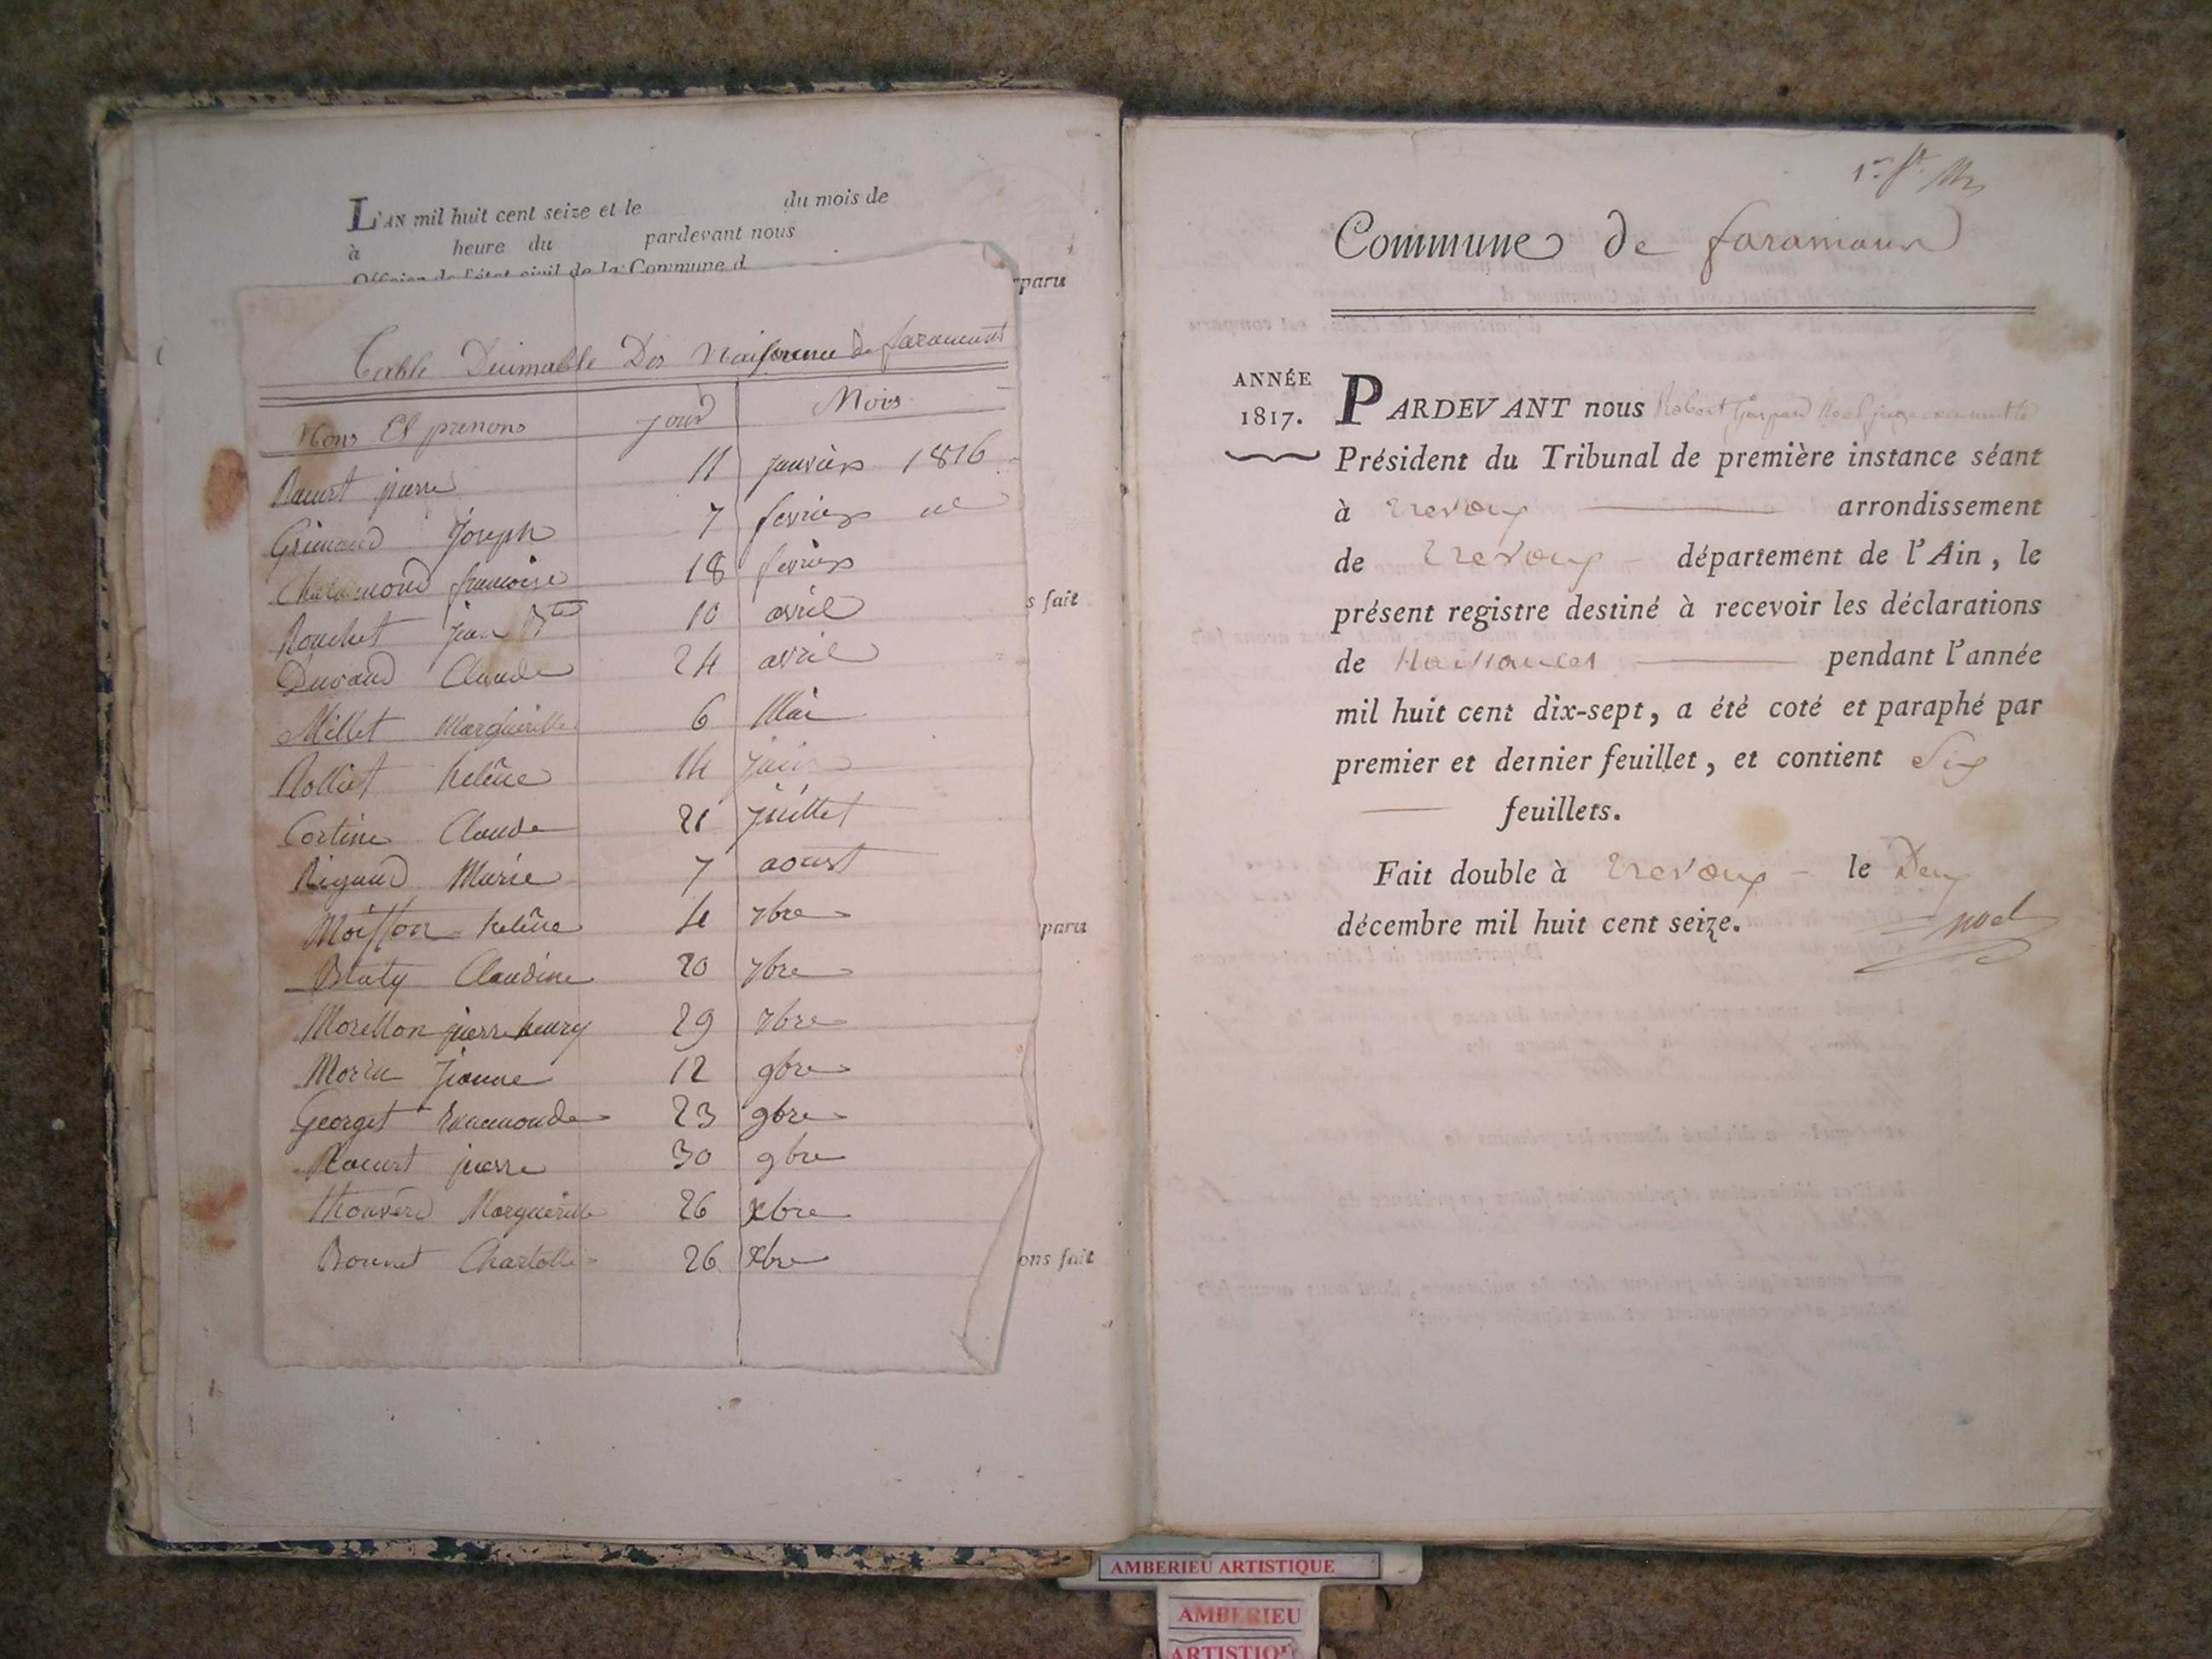 L'AN mil huit cent seize et le du mois de
à heure du pardevant nous
Officier de l'état civil de la Commune d
paru
Table Decimalle Des Naissance de faramant
Noms Et prenoms jour Mois
pierre 11 janvier 1816
Grimaud Joseph 7 fevrier
françoise 18 fevrier
Bouchet jean Bte 10 avril
Durand Claude 24 avril
Millet Margueritte 6 Mai
Rolliet heléne 14 juin
Cortine Claude 21 juillet
Rigaud Marie 7 aoust
Moisson heléne 4 7bre
Claudine 20 7bre
Morellon pierre henry 29 7bre
Morin jeanne 12 9bre
Georget 23 9bre
pierre 30 9bre
Thouverd Margueritte 26 xbre
Bonnet Charlotte 26 xbre
s fait
paru
ons fait
1er ft.
Commune de faramans
ANNÉE
1817.
PARDEVANT nous Robert Gaspard Noel juge
Président du Tribunal de première instance séant
à Trevoux arrondissement
de Trevoux département de l'Ain, le
présent registre destiné à recevoir les déclarations
de Naissances pendant l'année
mil huit cent dix-sept, a été coté et paraphé par
premier et dernier feuillet, et contient Six
feuillets.
Fait double à Trevoux le Deux
décembre mil huit cent seize.
Noel
AMBERIEU ARTISTIQUE
AMBERIEU
ARTISTIQU